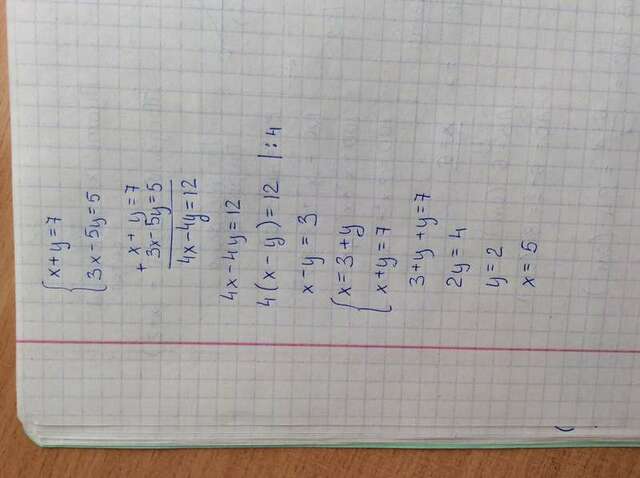 { x+y=7
3x-5y=5
+ x+y=7
3x-5y=5
4x-4y=12
4x-4y=12
4(x-y)=12 |:4
x-y=3
{ x=3+y
x+y=7
3+y+y=7
2y=4
y=2
x=5